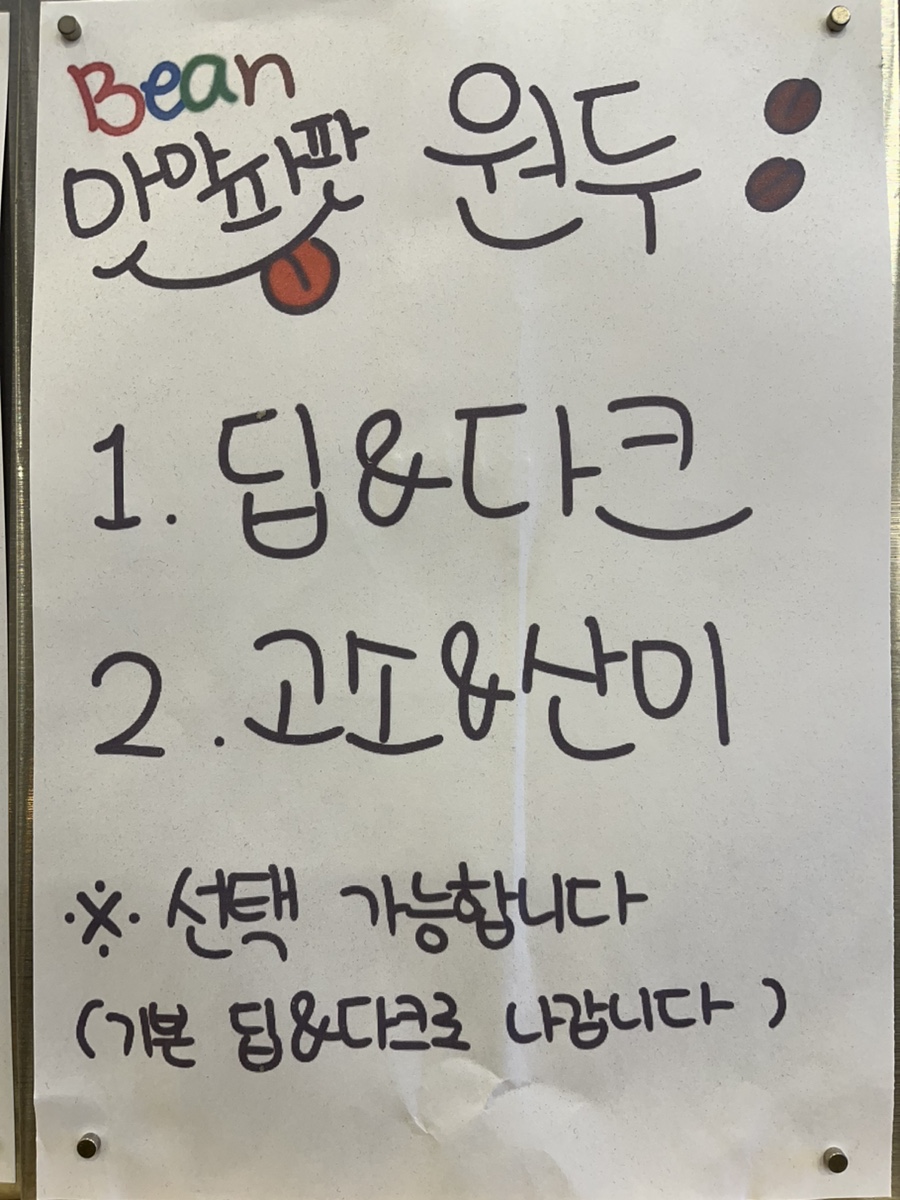 Bean
원두 :
1. 딥&다크
2. 고소&산미
※ 선택 가능합니다
(기본 딥&다크로 나갑니다)